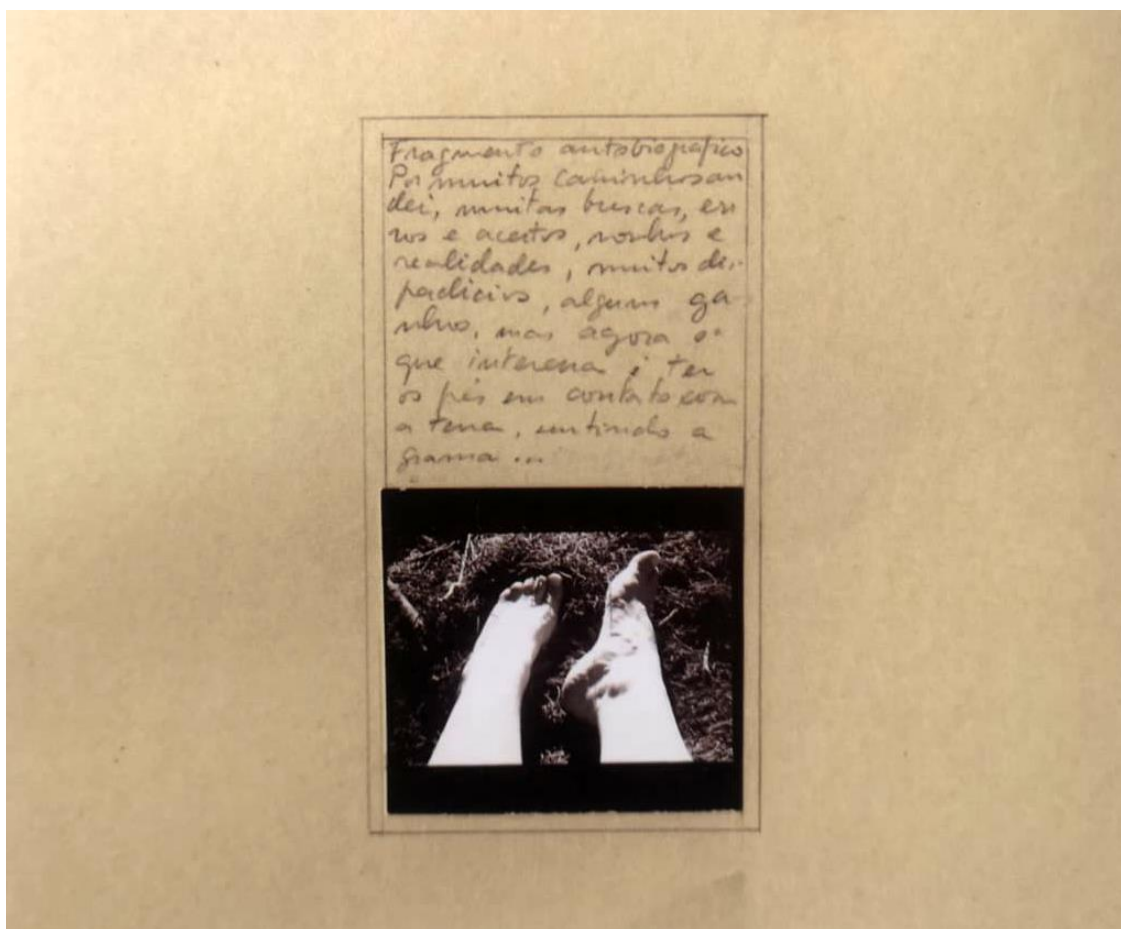 Fragmento autobiografico
Por muitos caminhos an
dei, muitas buscas, er
ros e acertos, sonhos e
realidades, muitos des-
perdicios, alguns ga-
nhos, mas agora o
que interessa é ter
os pés em contato com
a terra, sentindo a
grama ...